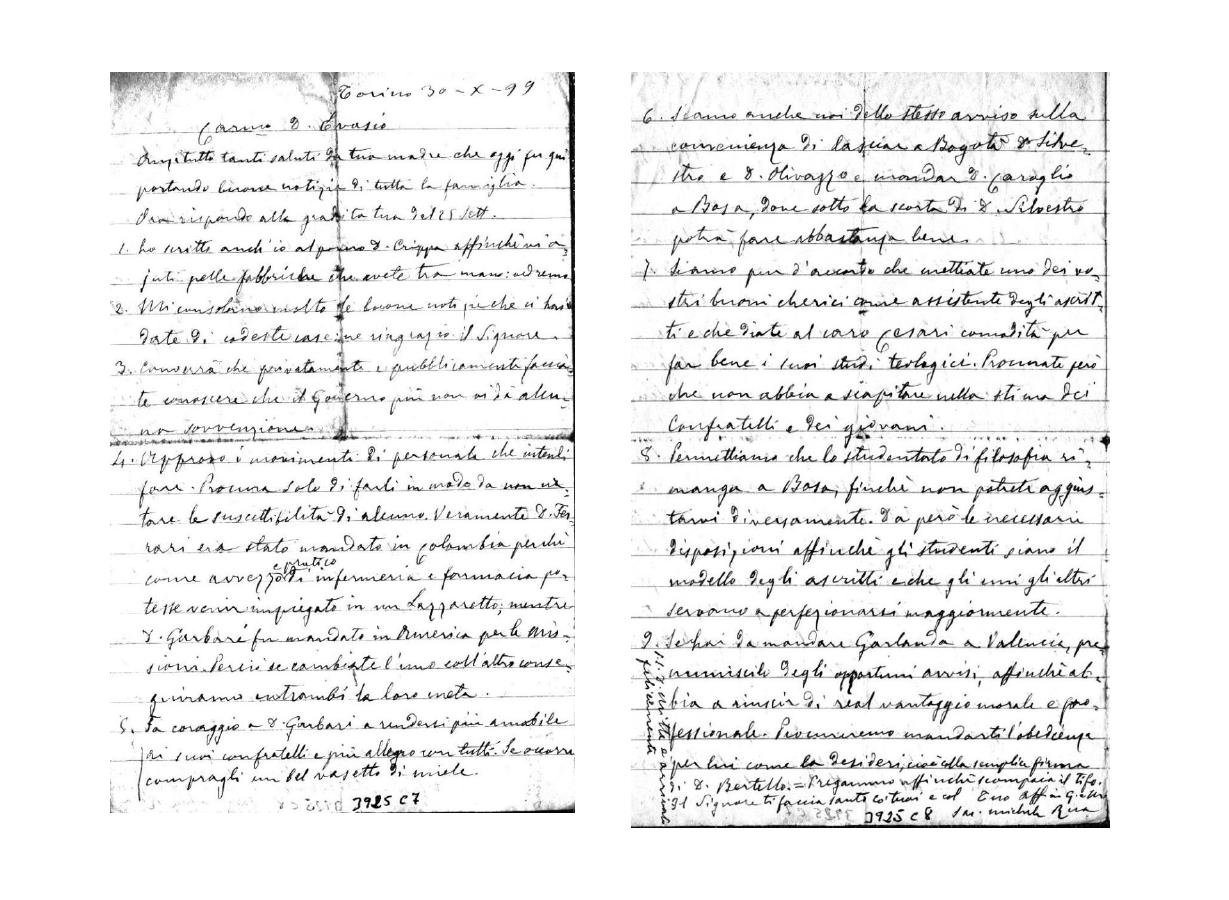 Torino 30-X-99
Carmo D. Evasio
Anzitutto tanti saluti da tua madre che oggi fu qui
portando buone notizie di tutta la famiglia.
Ora rispondo alla gradita tua del 25 Sett.
1. ho scritto anch'io al D. Crippa affinchè vi a-
juti nelle fabbriche che avete tra mano: vedremo
2. Mi consolano molto le buone notizie che ci hai
date di codeste case; ne ringrazio il Signore.
3. Converrà che privatamente e pubblicamente faccia-
te conoscere che il Governo più non vi dà alcu-
na sovvenzione.
4. Approvo i movimenti di personale che intendi
fare. Procura solo di farli in modo da non ur-
tare le suscettibilità di alcuno. Veramente D. Fer-
rari era stato mandato in Colombia perchè
come avvezzo e pratico di infermeria e farmacia po-
tesse venir impiegato in un Lazzaretto; mentre
D. Garbari fu mandato in America per le Mis-
sioni. Perciò se cambiate l'uno coll'altro conse-
guiranno entrambi la loro meta.
5. Fa coraggio a D. Garbari a rendersi più amabile
ai suoi confratelli e più allegro con tutti. Se occorre
compragli un bel vasetto di miele.
3925 C7
6. Siamo anche noi dello stesso avviso sulla
convenienza di lasciar a Bogotà D. Silve-
stro e D. Olivazzo e mandar D. Caroglio
a Bosa, dove sotto la scorta di D. Silvestro
potrà fare abbastanza bene.
7. Siamo pur d'accordo che mettiate uno dei vo-
stri buoni cherici come assistente degli ascrit-
ti e che diate al caro Cesari comodità per
far bene i suoi studi teologici. Procurate però
che non abbia a scapitare nella stima dei
Confratelli e dei giovani.
8. Permettiamo che lo studentato di filosofia ri-
manga a Bosa, finchè non potrete aggius-
tarvi diversamente. Dà però le necessarie
disposizioni affinchè gli studenti siano il
modello degli ascritti e che gli uni gli altri
servano a perfezionarsi maggiormente.
9. Se hai da mandare Garlanda a Valencia, pre-
muniscilo degli opportuni avvisi, affinchè ab-
bia a riuscir di real vantaggio morale e pro-
fessionale. Procureremo mandarti l'obbedienza
per lui come la desideri, cioè colla semplice firma
di D. Bertello. = Preghiamo affinchè scompaia il tifo.
Il Signore ti faccia santo co' tuoi e col Tuo aff. in G. e M.
Sac. Michele Rua
3925 C8